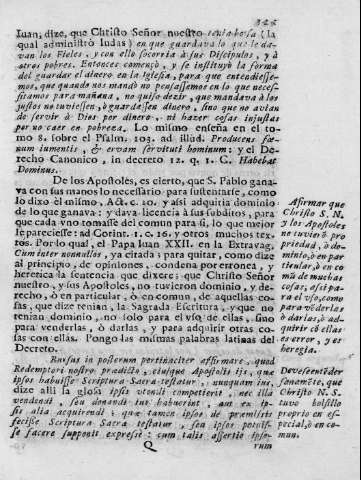 125
Iuan, dize, que Christo Señor nuestro tenia bolsa (la
qual administrò Iudas) en que guardava lo que le da-
van los Fieles, y con ello socorria à sus Discipulos, y à
otros pobres. Entonces começò, y se instituyò la forma
del guardar el dinero en la Iglesia, para que entendiesse-
mos, que quando nos mandò no pensassemos en lo que neces-
sitamos para mañana, no quiso dezir, que mandava à los
justos no tuviessen, ò guardassen dinero, sino que no avian
de servir à Dios por dinero, ni hazer cosas injustas
por no caer en pobreza. Lo mismo enseña en el to-
mo 8. sobre el Psalm. 103. ad illud. Producens fœ-
num iumentis, & ervam servituti hominum: y el De-
recho Canonico, in decreto 12. q. 1. C. Habebat
Dominus.
De los Apostoles, es cierto, que S. Pablo gana-
va con sus manos lo necessario para sustentarse, como
lo dixo èl mismo, Act. c. 20. y assi adquitia dominio
de lo que ganava: y dava licencia à sus subditos, para
que cada vno tomasse del comun para sì, lo que mejor
le pareciesse: ad Corint. 1. c. 16. y otros muchos tex-
tos. Por lo qual, el Papa Iuan XXII. en la Extravag.
Cum inter nonnullos, ya citada; para quitar, como dize
al principio, de opiniones, condena por erronea, y
heretica la sentencia que dixere: que Christo Señor
nuestro, y sus Apostoles, no tuvieron dominio, y de-
recho, ò en particular, ò en comun, de aquellas co-
sas, que dize tenian, la Sagrada Escritura, y que no
tenian dominio, no solo para el vso de ellas, sino
para venderlas, ò darlas, y para adquirir otras co-
sas con ellas. Pongo las mismas palabras latinas del
Decreto.
Rursus in posterum pertinaciter affirmare, quod
Redemptori nostro prædicto, eiusque Apostolis ijs, quæ
ipsos habuisse Scriptura Sacra testatur, nunquam ius,
dize alli la glosa ipsis vtendi competierit, nec illa
vendendi, seu donandi ius habuerint, aut ex ip-
sis alia acquirendi: quæ tamen ipsos de præmissis
fecisse Scriptura Sacra testatur, seu ipsos potuis-
se facere supponit expresè: cum talis assertio ipso-
Q rum
Afirmar que
Christo S. N.
y los Apostoles
no tuvierō pro-
priedad, ò do-
minio, ò en par
ticular, ò en co
mũ de muchas
cosas, assi pa-
ra el vso, como
para vēderlas
ò darlas, ò ad-
quirir cõ ellas
es error, y es
heregia.
Devese entēder
sanamēte, que
Christo N. S.
tuvo bolsillo
proprio en es-
pecial, ò en co-
mun.